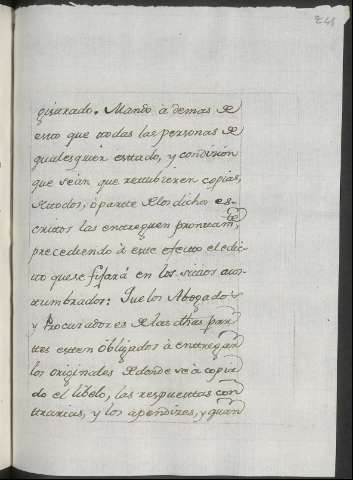 241
gistrado. Mando à demas de
esto que todas las personas de
qualesquier estado, y condizion
que sean que retubieren copias,
de todos, ò parte de los dichos es-
critos las entreguen prontam.te
precediendo à este efecto el edic
to que se fijará en los sitios acos
tumbrados: Que los Abogados
y Procuradores de las dhas par
tes esten obligados à entregar
los originales de donde se à copia
do el libelo, las respuestas con
trarias, y los apendizes, y quan